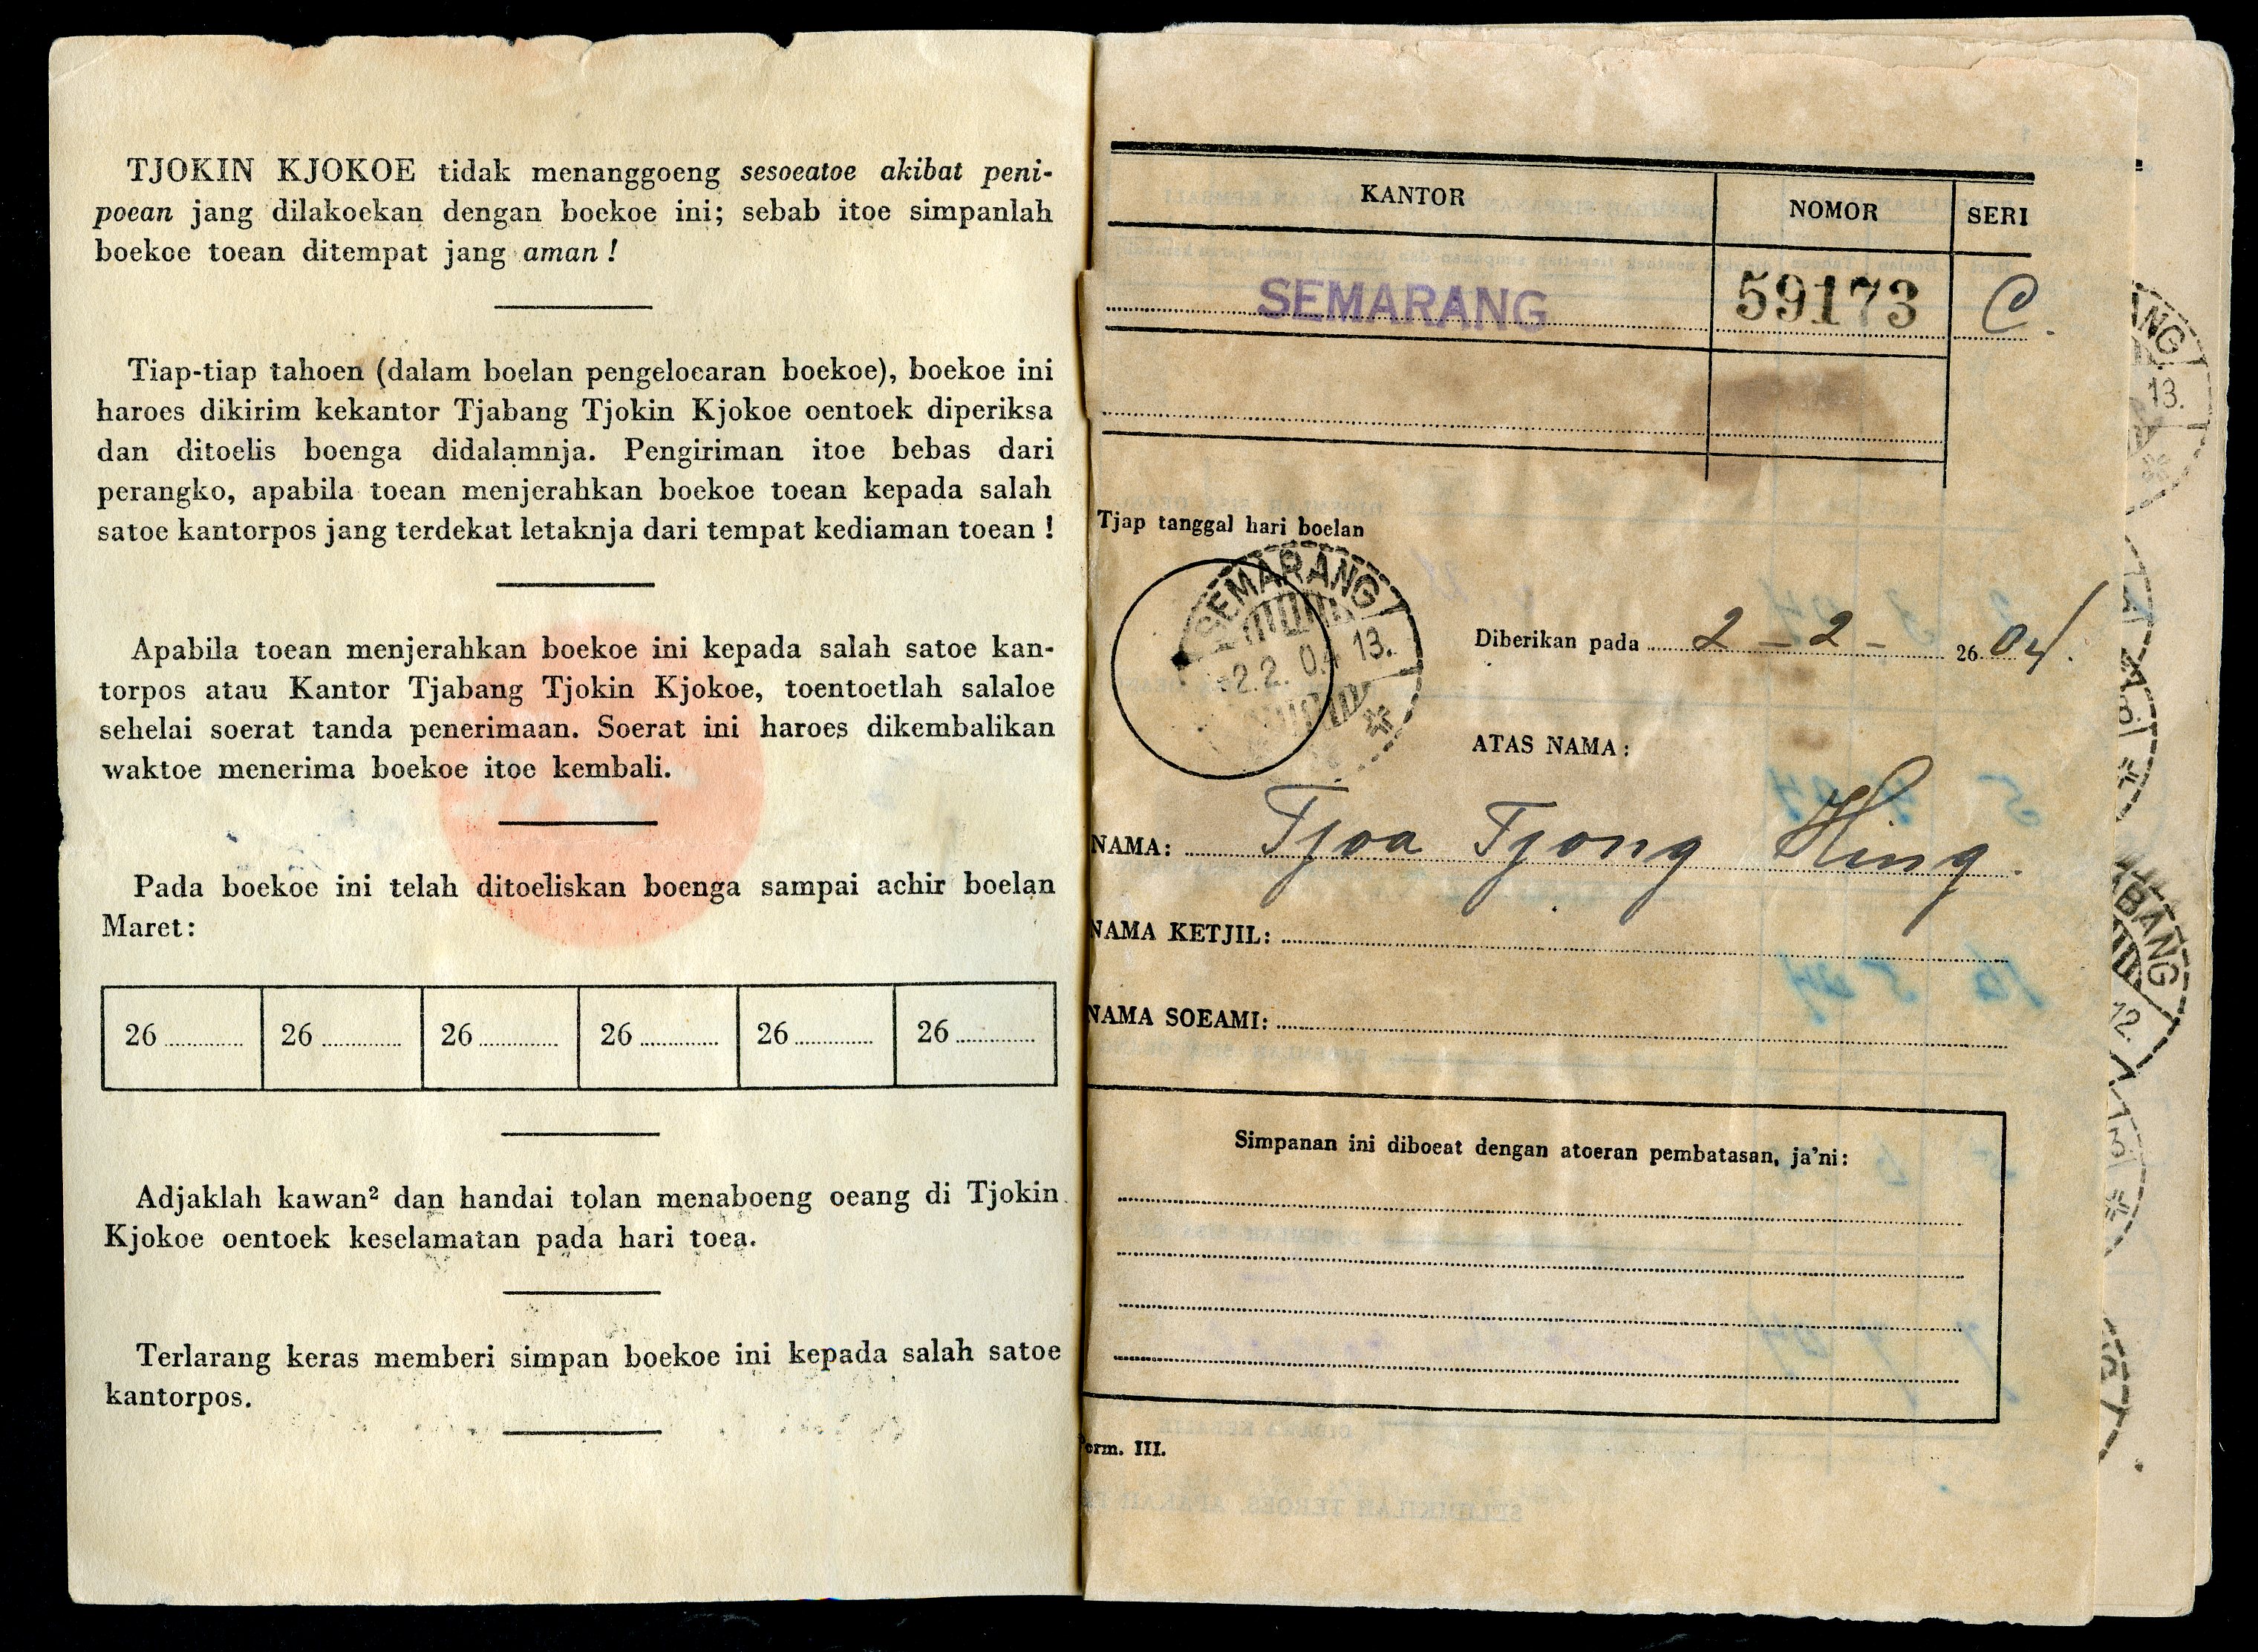 TJOKIN KJOKOE tidak menanggoeng sesoeatoe akibat peni-
poean jang dilakoekan dengan boekoe ini; sebab itoe simpanlah
boekoe toean ditempat jang aman !
Tiap-tiap tahoen (dalam boelan pengeloearan boekoe), boekoe ini
haroes dikirim kekantor Tjabang Tjokin Kjokoe oentoek diperiksa
dan ditoelis boenga didalamnja. Pengiriman itoe bebas dari
perangko, apabila toean menjerahkan boekoe toean kepada salah
satoe kantorpos jang terdekat letaknja dari tempat kediaman toean !
Apabila toean menjerahkan boekoe ini kepada salah satoe kan-
torpos atau Kantor Tjabang Tjokin Kjokoe, toentoetlah salaloe
sehelai soerat tanda penerimaan. Soerat ini haroes dikembalikan
waktoe menerima boekoe itoe kembali.
Pada boekoe ini telah ditoeliskan boenga sampai achir boelan
Maret:
26 26 26 26 26 26
Adjaklah kawan² dan handai tolan menaboeng oeang di Tjokin
Kjokoe oentoek keselamatan pada hari toea.
Terlarang keras memberi simpan boekoe ini kepada salah satoe
kantorpos.
KANTOR NOMOR SERI
SEMARANG 59173 C.
Tjap tanggal hari boelan
SEMARANG
2.2.04 13.
Diberikan pada 2 - 2 - 2604.
ATAS NAMA:
NAMA: Tjoa Tjong Hing
NAMA KETJIL:
NAMA SOEAMI:
Simpanan ini diboeat dengan atoeran pembatasan, ja'ni:
Perm. III.
ANG
13.
BANG
12.